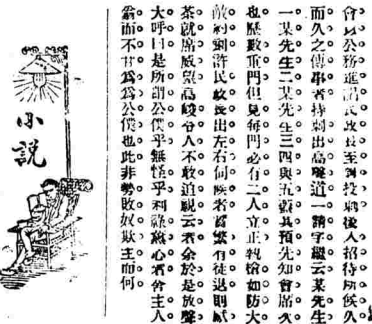 會以公務進謁民政長至則投刺後入招待所候久。
而久之。傳事者持刺出。高聲道一請字。繼云某先生。
一某先生二某先生三四與五蓋其預先知會席久。
也。歷數重門。但見每門必有二人立正執槍。如防大
敵。約刻許民政長出。左右伺候者實繁有徒。退則獻
茶就席。威望高峻。令人不敢迫視云者。余於是放聲。
大呼曰。是所謂公僕乎。無怪乎利祿熏心者。舍主人。
翁而不甘爲。爲公僕也。此非勢敗奴欺主而何。
小說